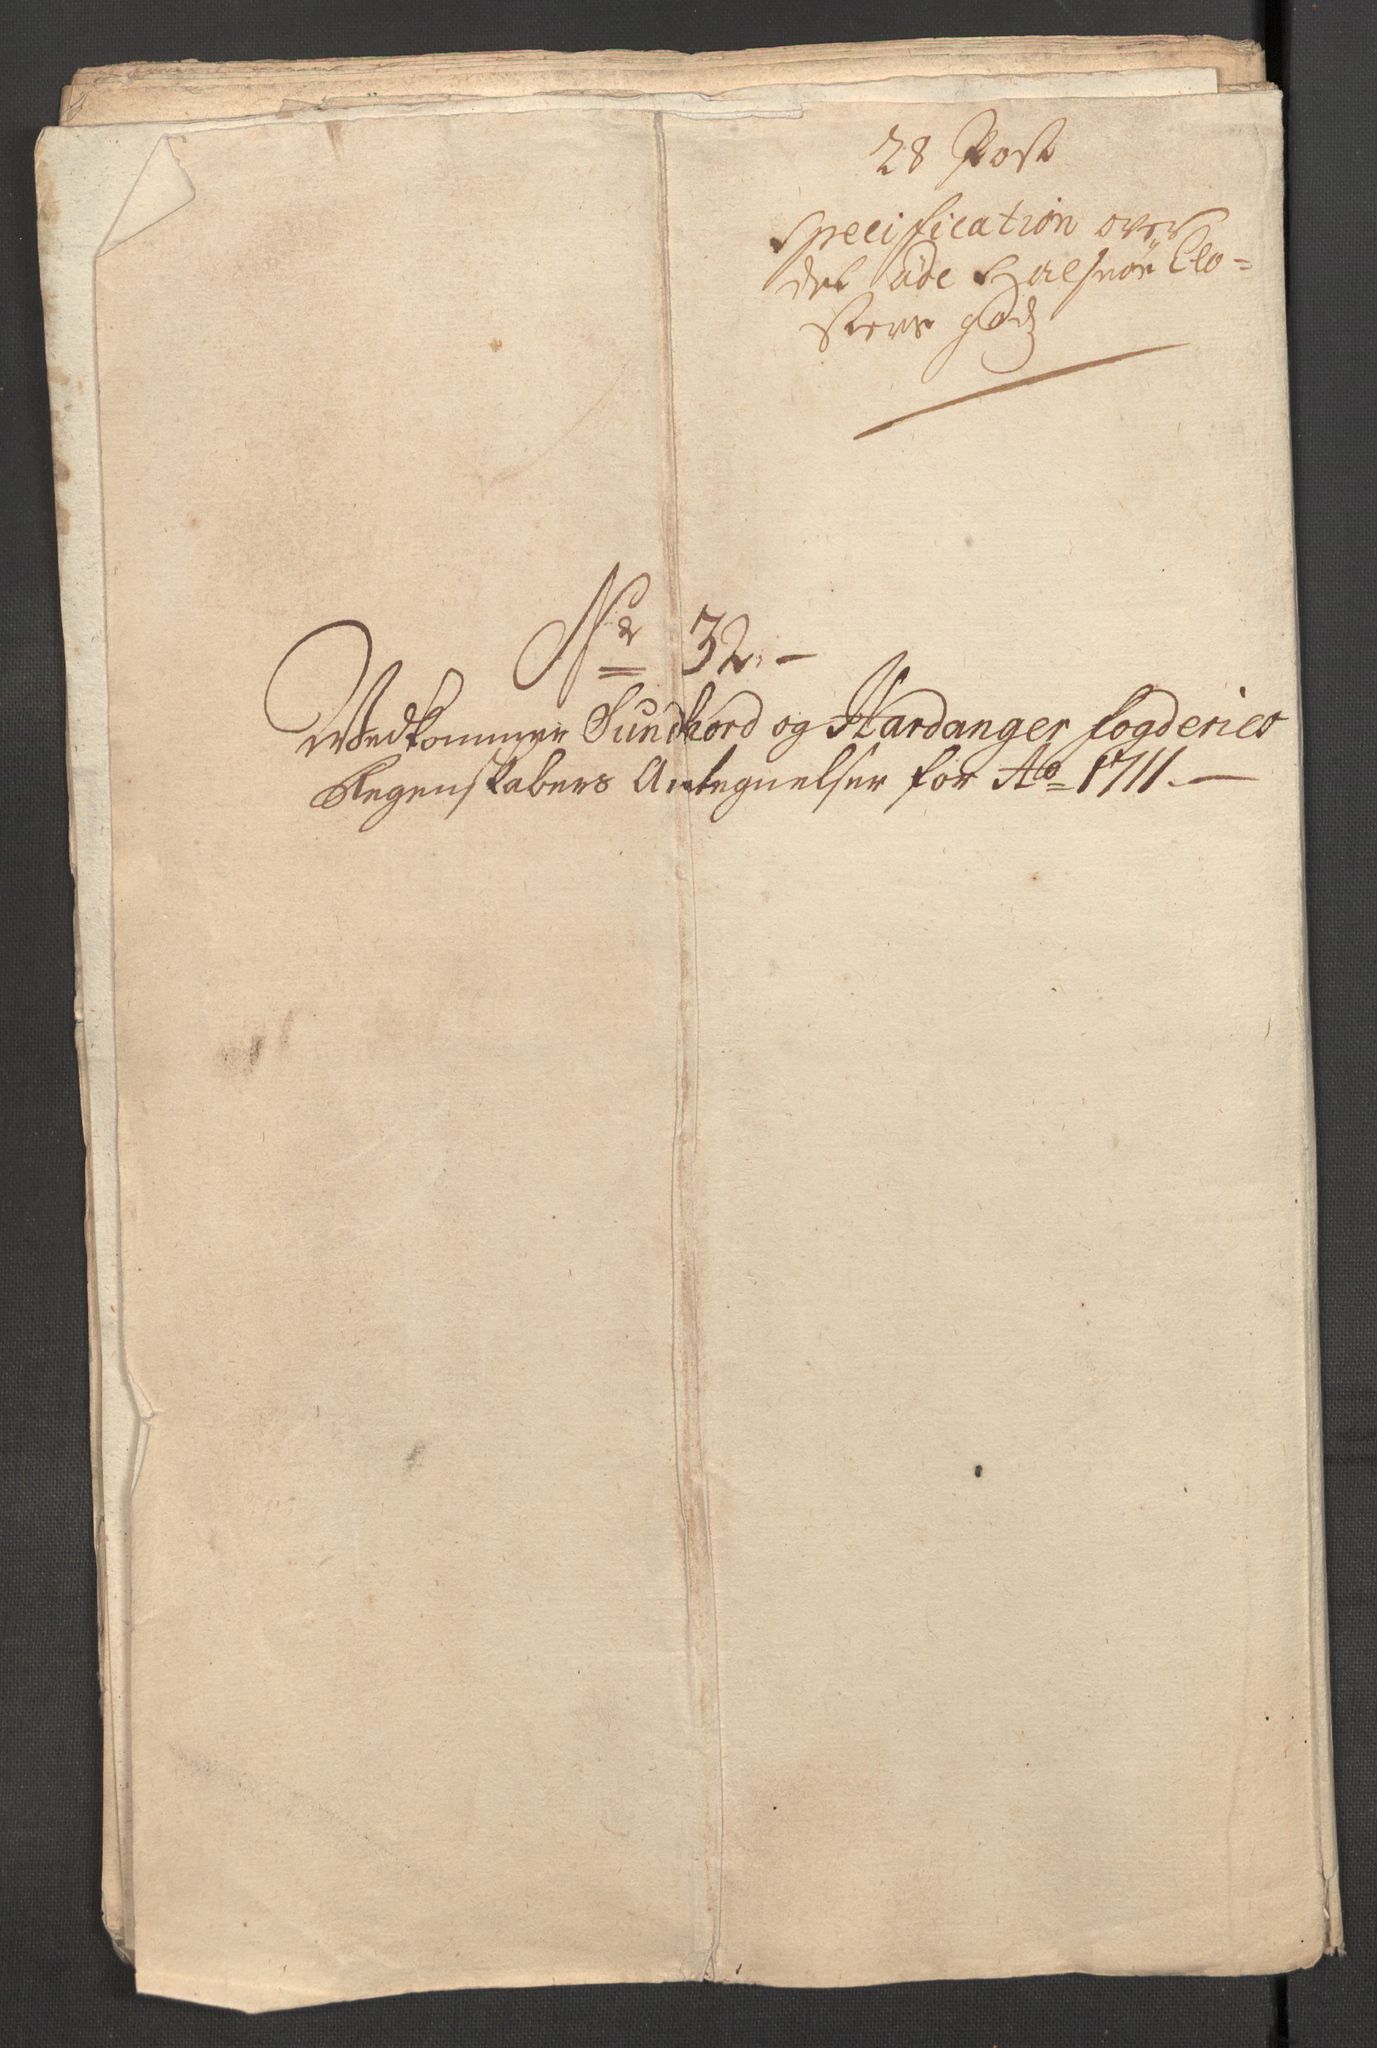 28 Post
Specification over
det øde Halsnøe Clo=
sters godz
No 32.
Vedkommer Sundhord og Hardanger fogderies
Regenskabers Antegnelser for Ao 1711.